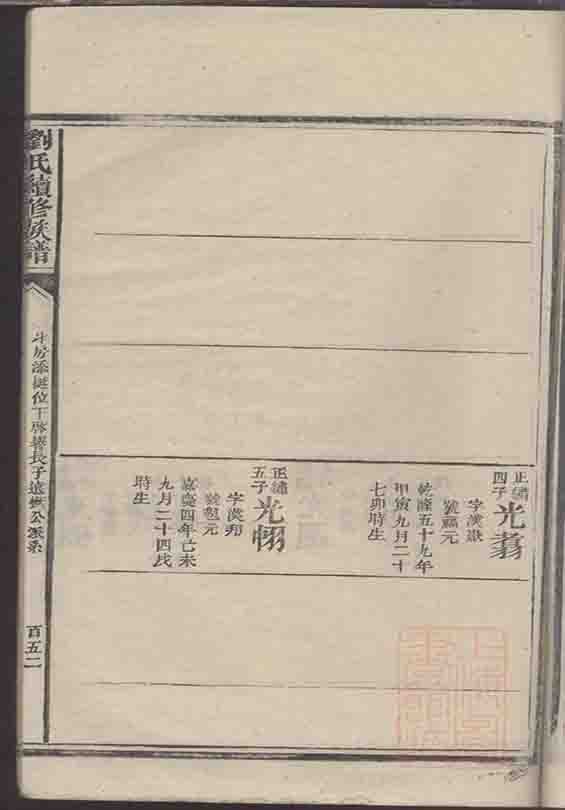 正繡四子光翥
字漢嶽
號福元
乾隆五十九年
甲寅九月二十
七卯時生
正繡五子光栩
字漢邦
號恕元
嘉慶四年己未
九月二十四戌
時生
劉氏續修族譜
斗房添挺位下啓響長子遠公派系
百五二